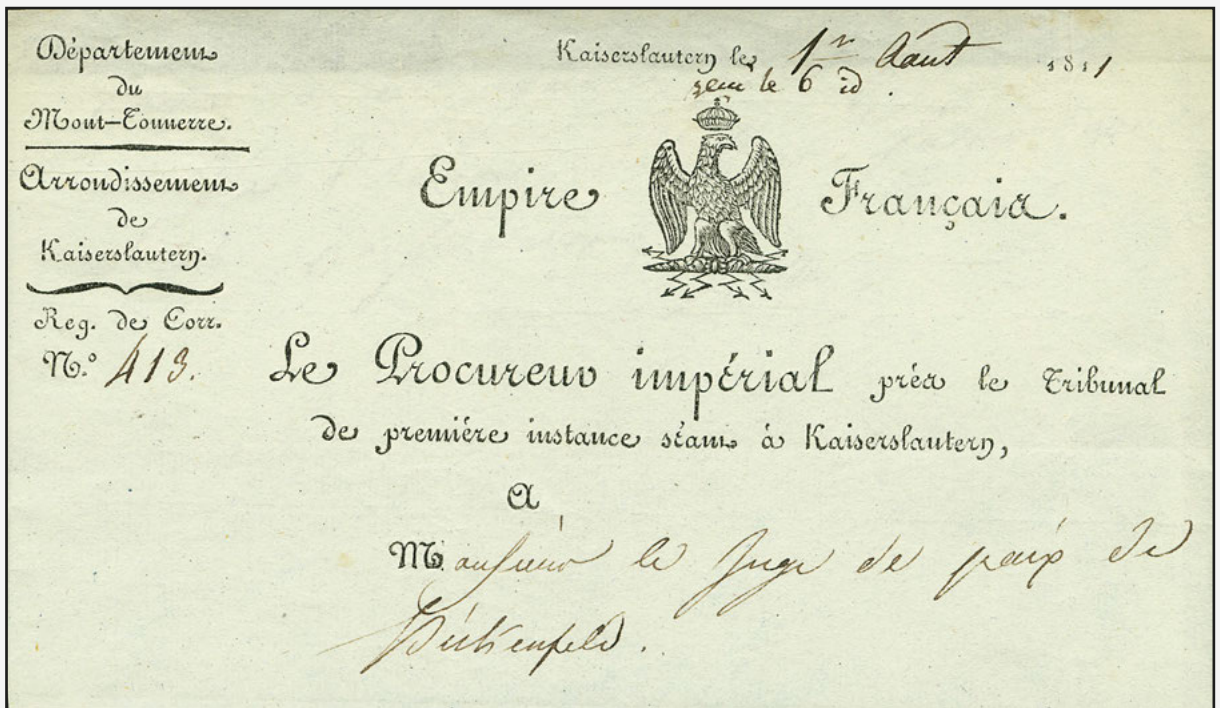 Département
du
Mont-Tonnerre.
Arrondissement
de
Kaiserslautern.
Reg. de Corr.
N.º 413.
Kaiserslautern le 1er Aout 1811
reçu le 6 id.
Empire Français.
Le Procureur impérial près le Tribunal
de première instance séant à Kaiserslautern,
A
Monsieur le Juge de paix de
Birkenfeld.